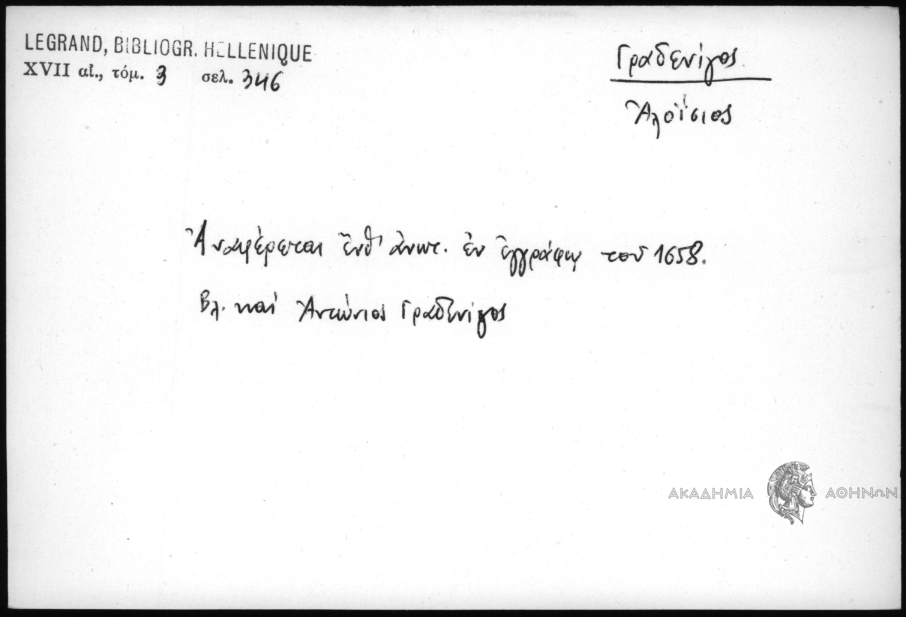 LEGRAND, BIBLIOGR. HELLENIQUE
XVII αἰ., τόμ. 3 σελ. 346
Γραδενίγος
Ἀλοΐσιος
Ἀναφέρεται ἔνθ' ἀνωτ. ἐν ἐγγράφῳ τοῦ 1658.
Βλ. καὶ Ἀντώνιος Γραδενίγος
ΑΚΑΔΗΜΙΑ ΑΘΗΝΩΝ